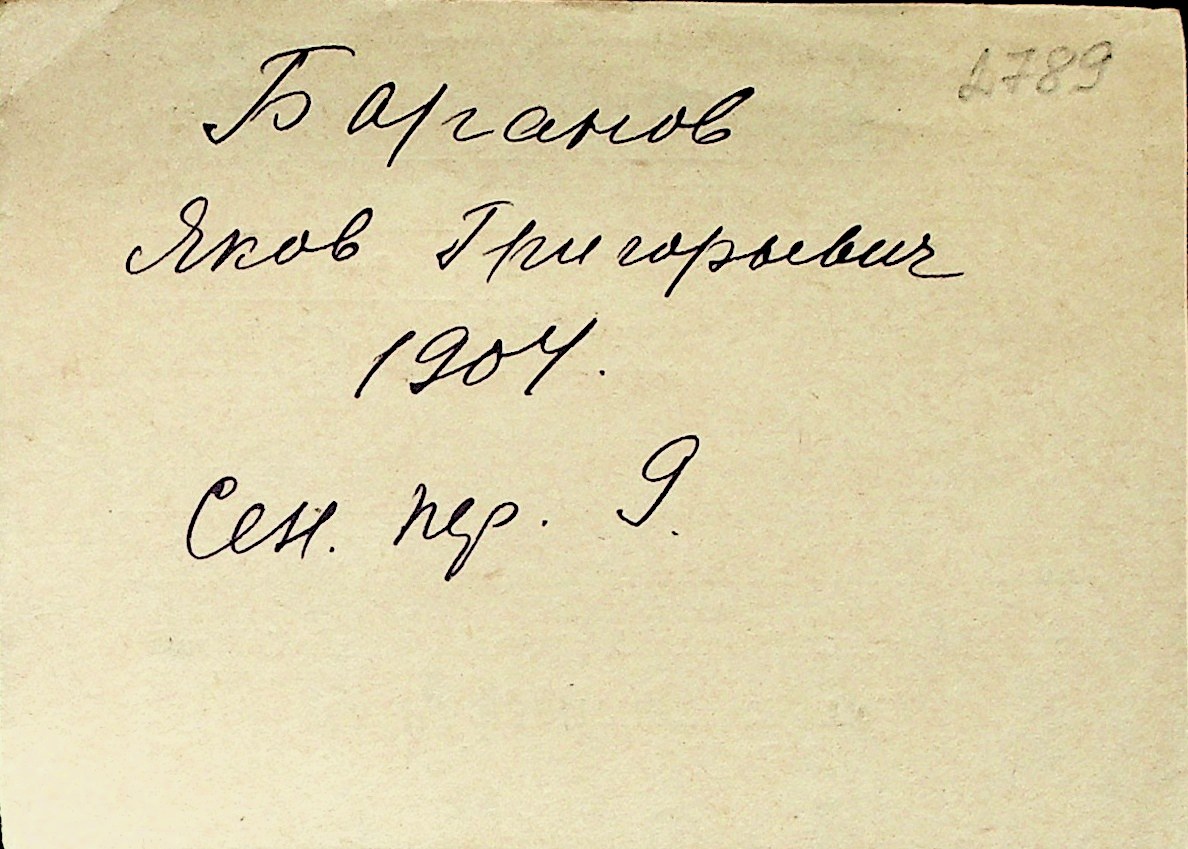 2789
Барганов
Яков Григорьевич
1904.
Сен. пер. 9.